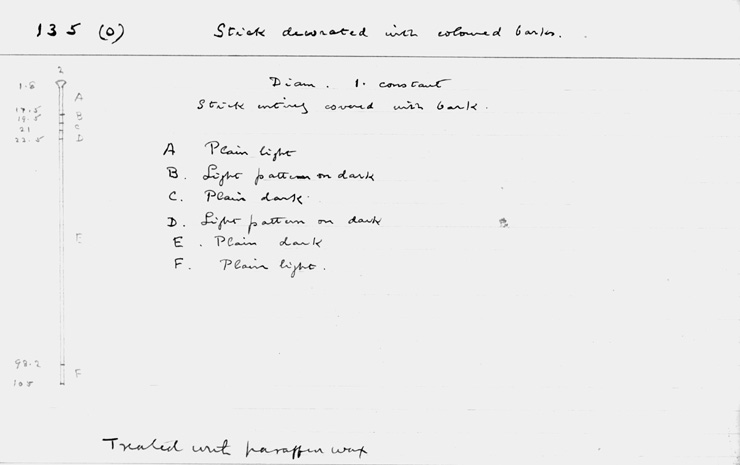 135 (O) Stick decorated with coloured barks.
2
1.8
A
17.5 B
19.5 C
21 D
22.5
Diam. 1. constant
Stick entirely covered with bark.
A Plain light
B. Light pattern on dark
C. Plain dark.
D. Light pattern on dark
E. Plain dark
F. Plain light.
E
98.2
F
105
Treated with paraffin wax